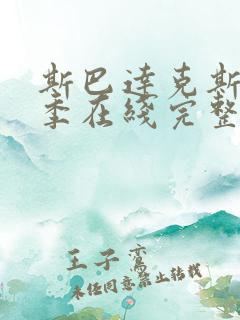 斯巴达克斯
季在线完整
王子鸾
未经同意禁止转载